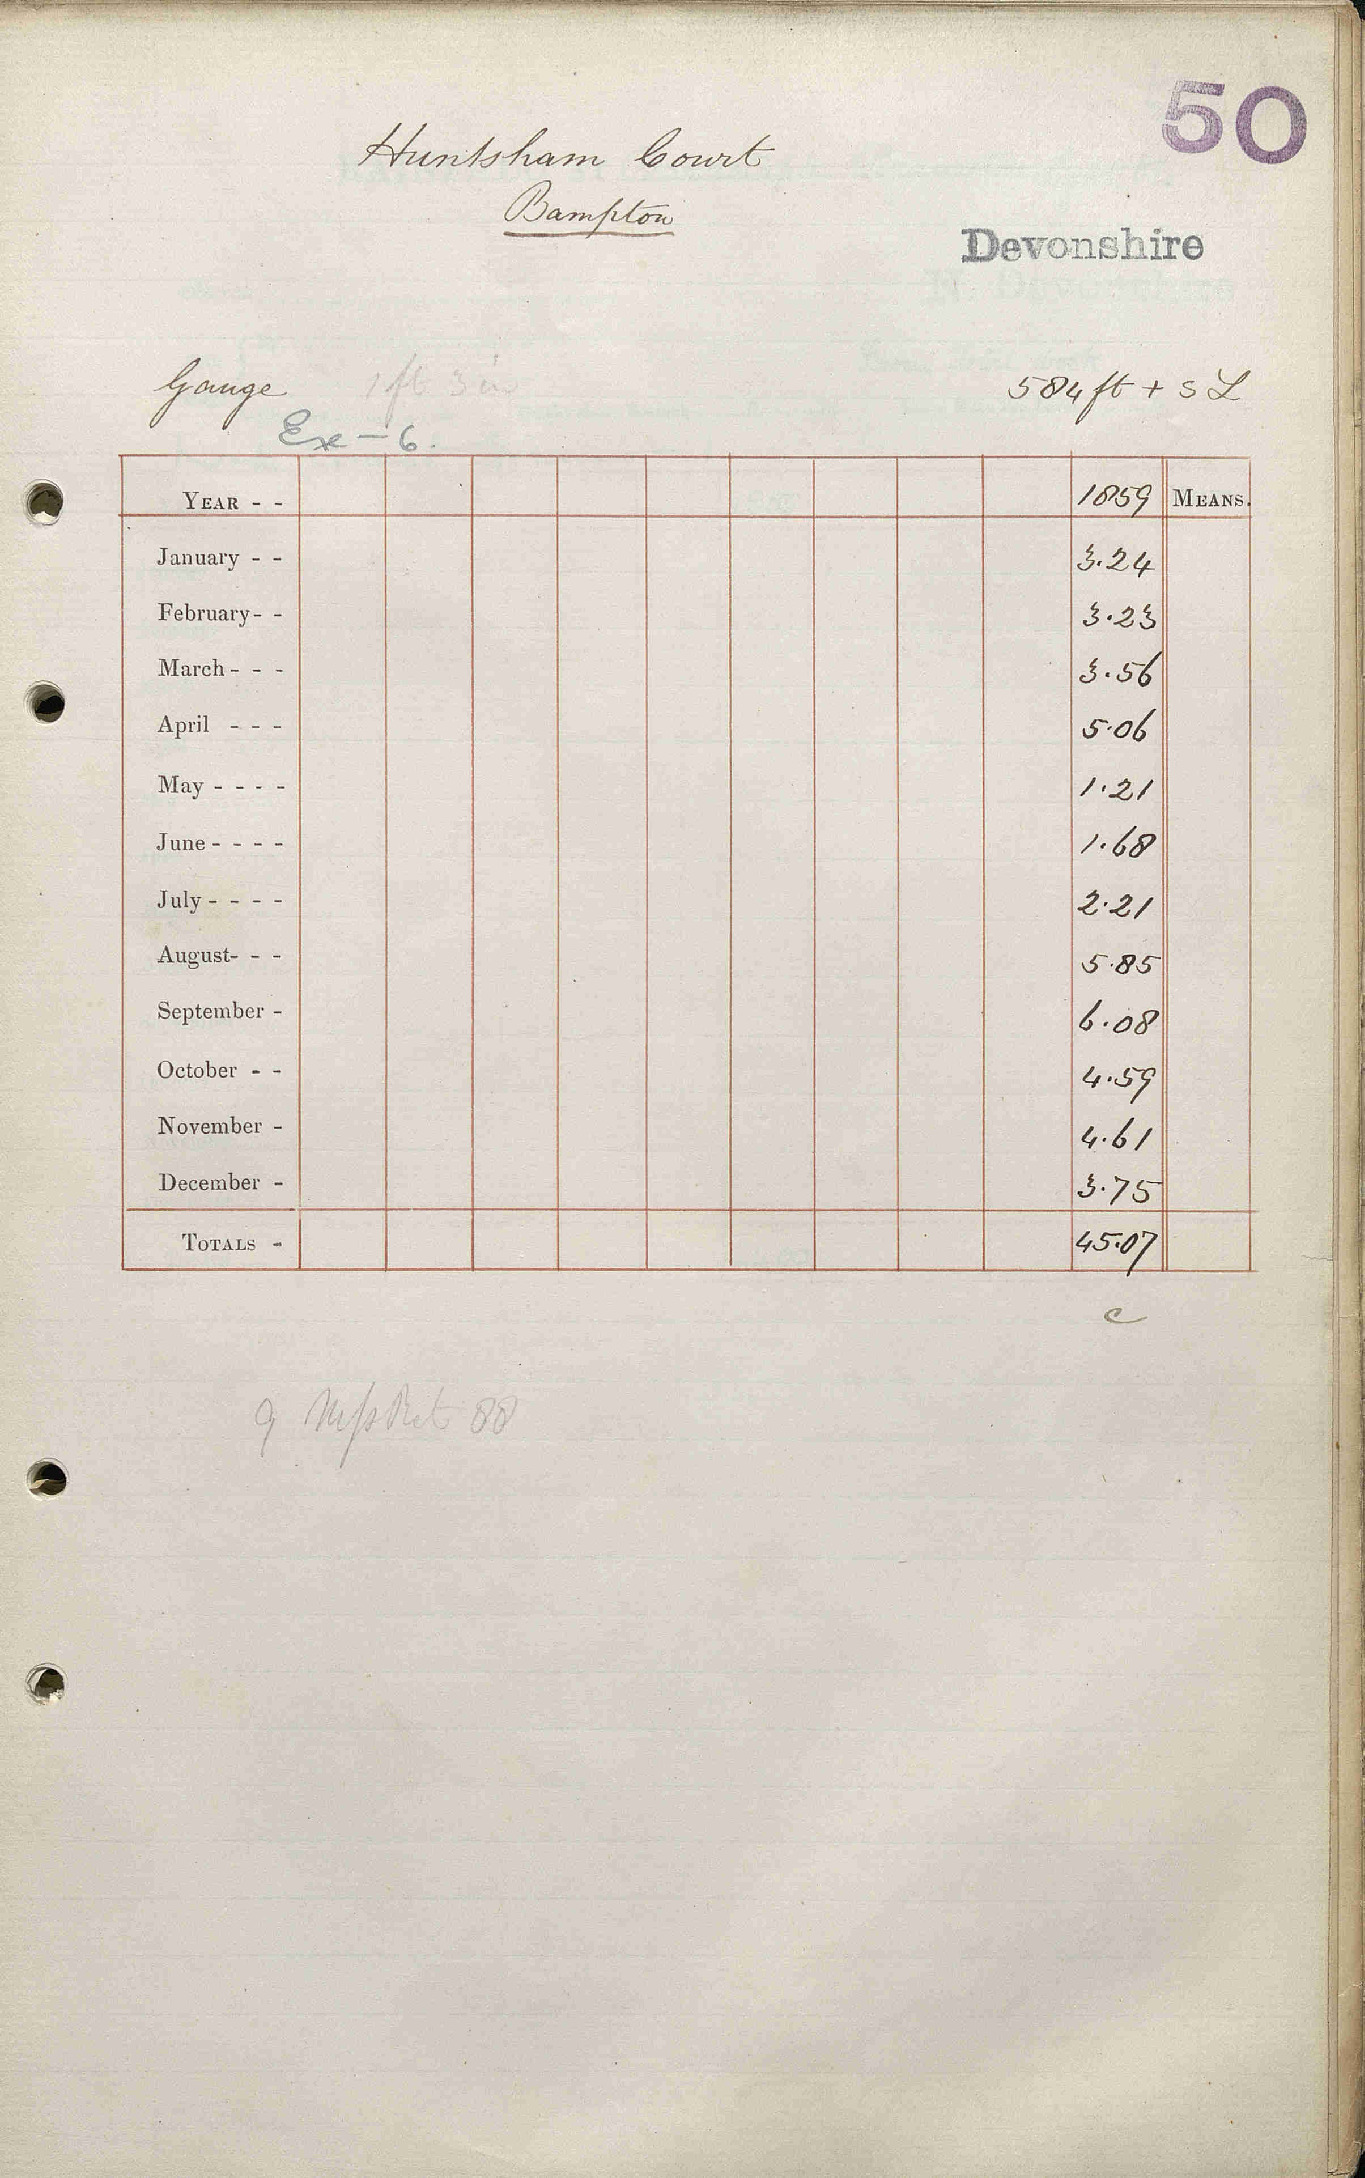 50
Huntsham Court
Bampton
Devonshire
Gauge 1 ft 3 in 584 ft + S L
Ex - 6.
YEAR - - 1859 MEANS.
January - - 3.24
February - - 3.23
March - - - 3.56
April - - - 5.06
May - - - - 1.21
June - - - - 1.68
July - - - - 2.21
August - - - 5.85
September - 6.08
October - - 4.59
November - 4.61
December - 3.75
TOTALS - 45.07
c
88